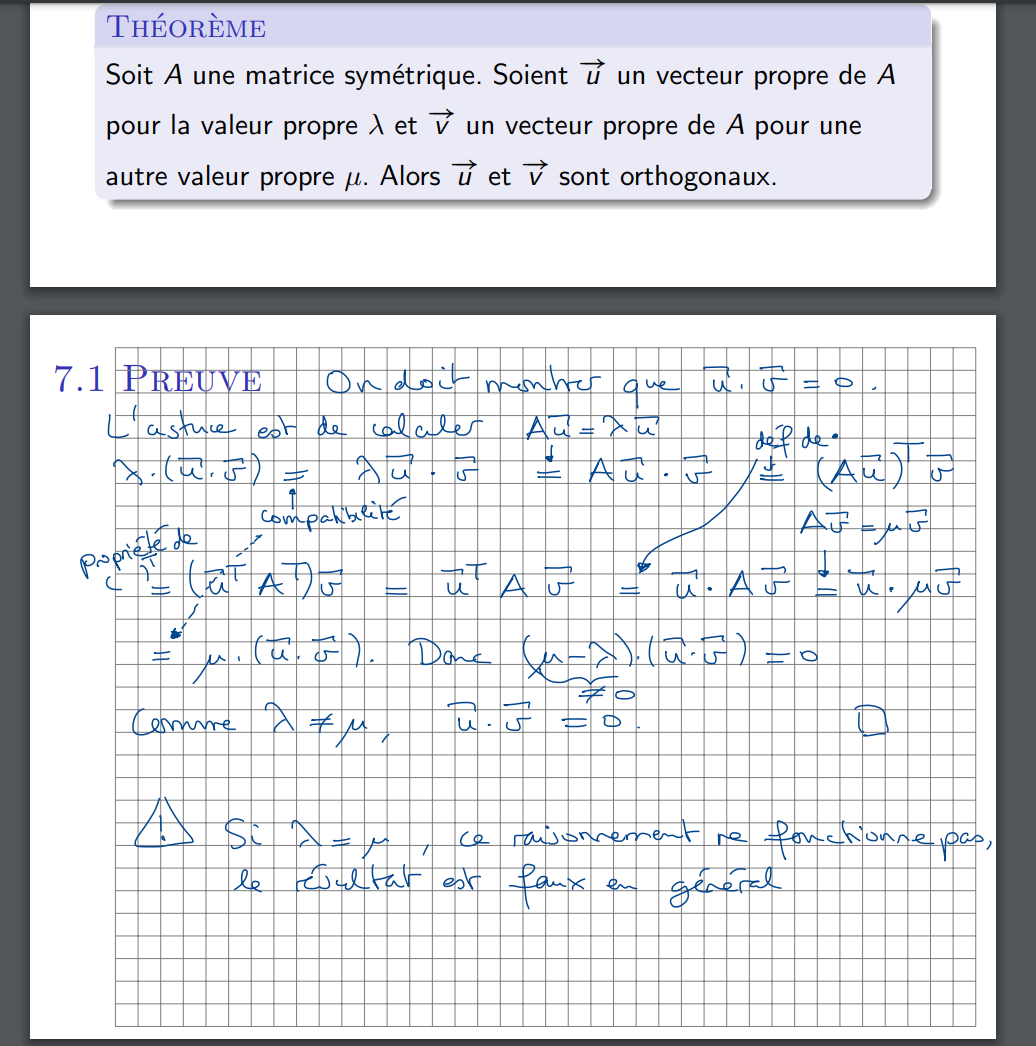 THÉORÈME
Soit A une matrice symétrique. Soient u⃗ un vecteur propre de A
pour la valeur propre λ et v⃗ un vecteur propre de A pour une
autre valeur propre μ. Alors u⃗ et v⃗ sont orthogonaux.
7.1 PREUVE On doit montrer que u⃗ . v⃗ = 0 .
L'astuce est de calculer Au⃗ = λu⃗
déf de •
λ·(u⃗.v⃗) = λu⃗ · v⃗ = Au⃗ . v⃗ = (Au⃗)ᵀ v⃗
compatibilité
Av⃗ = μv⃗
propriété de
( )ᵀ = (u⃗ᵀ Aᵀ) v⃗ = u⃗ᵀ A v⃗ = u⃗ · A v⃗ = u⃗ . μv⃗
= μ.(u⃗.v⃗). Donc (μ-λ).(u⃗.v⃗) = 0
≠ 0
Comme λ ≠ μ, u⃗ . v⃗ = 0. □
! Si λ = μ, ce raisonnement ne fonctionne pas,
le résultat est faux en général